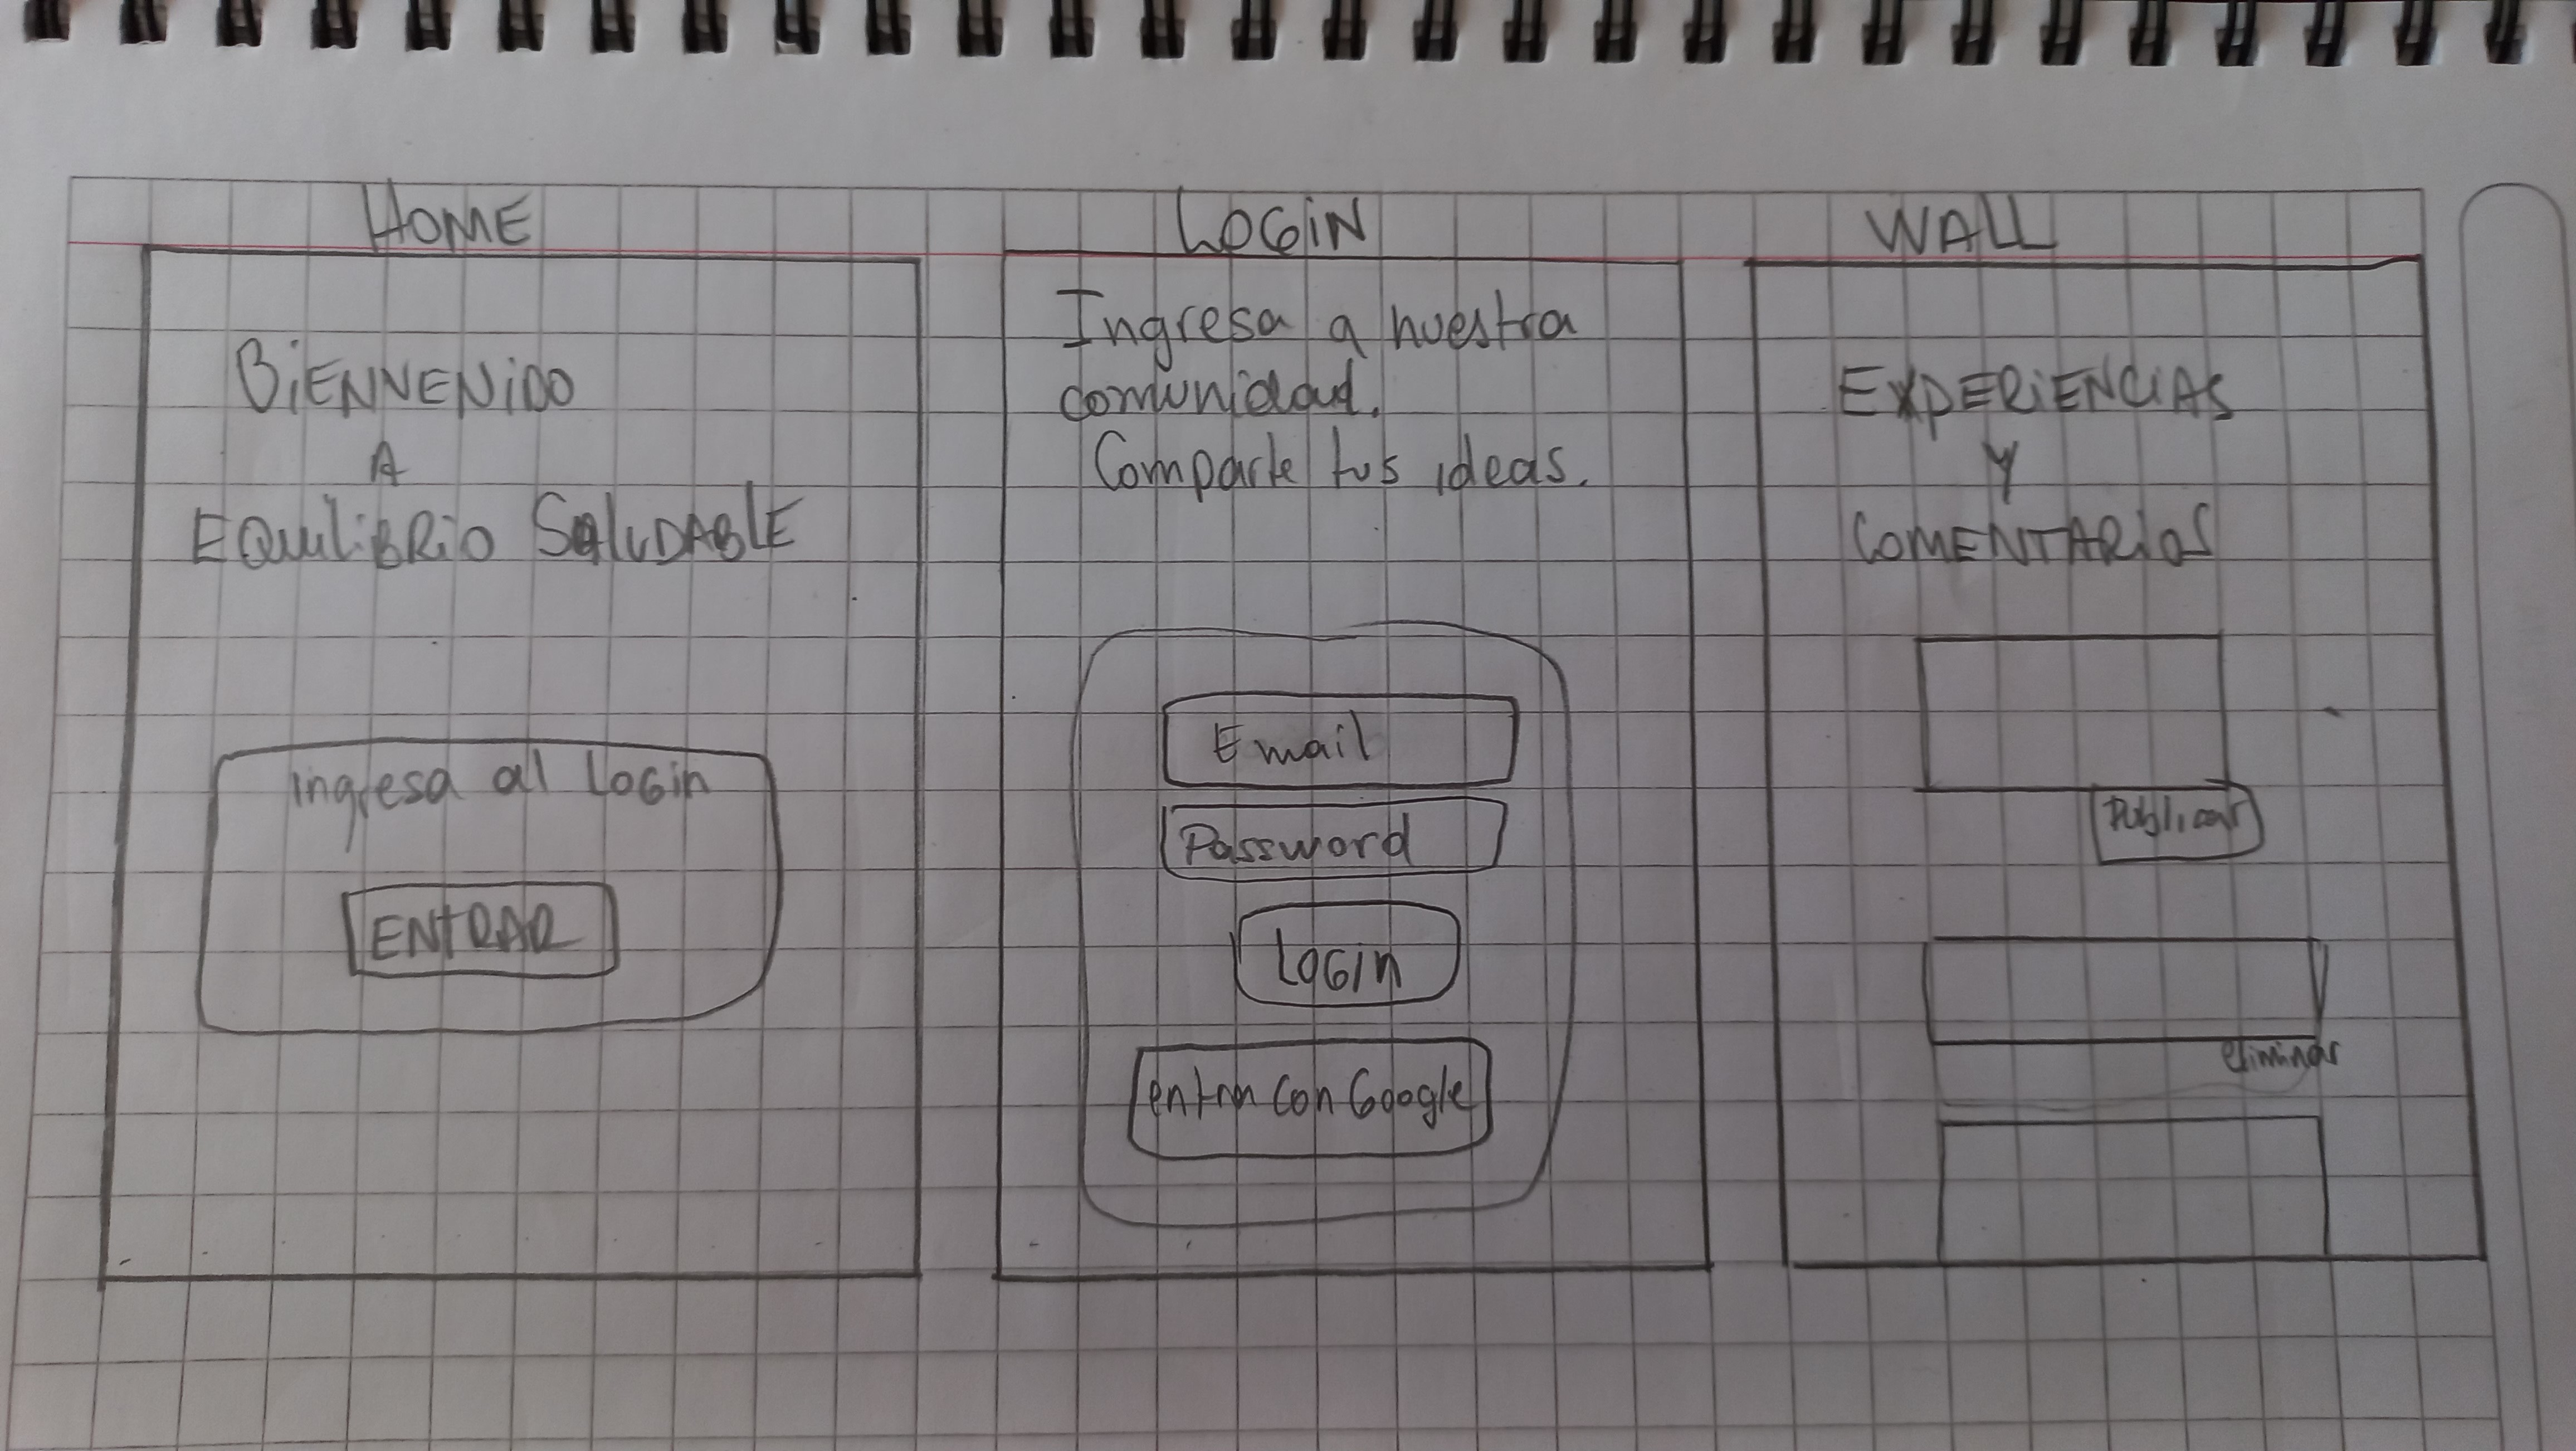 HOME
BiENNENiDO
A
EQuiLiBRio SaluDABlE
Ingresa al LoGin
ENTRAR
LOGiN
Ingresa a nuestra
comunidad.
Comparte tus ideas.
Email
Password
LOGin
entra con Google
WALL
EXPERiENCiAS
Y
COMENTARiOS
Publicar
eliminar